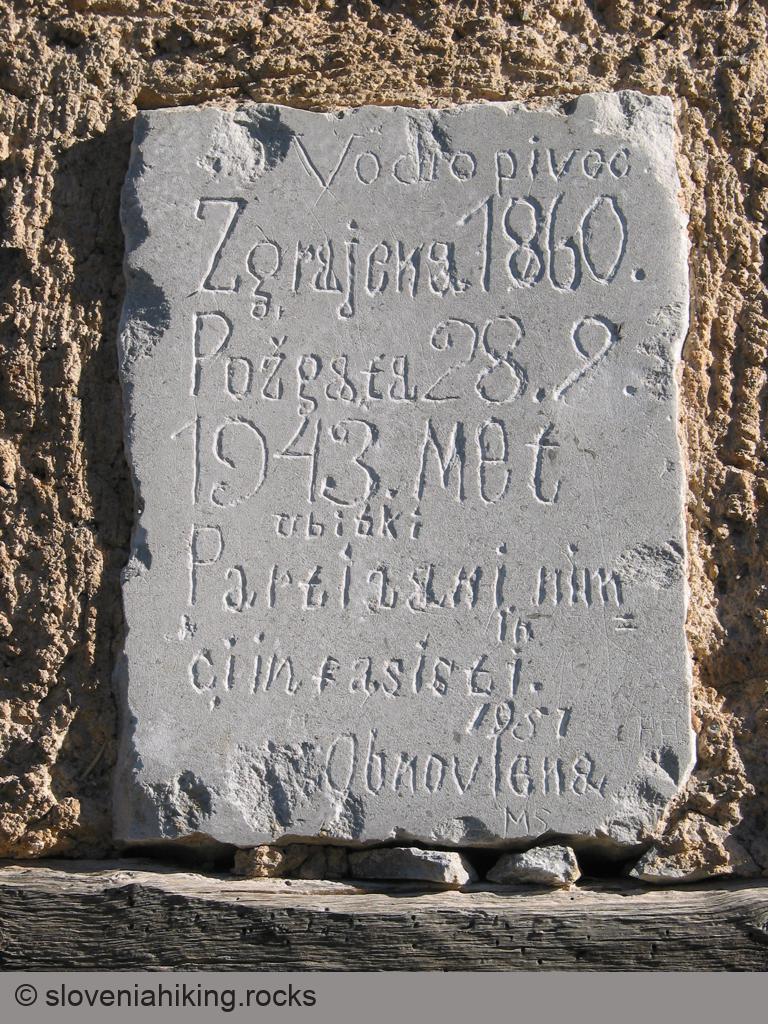 Vodro pivoo
Zgrajena 1860.
Požgata 28.9.
1943. Met
ubitki
Partizani nim=
in
či in fasisti.
1951
Obnovlena
MS
© sloveniahiking.rocks